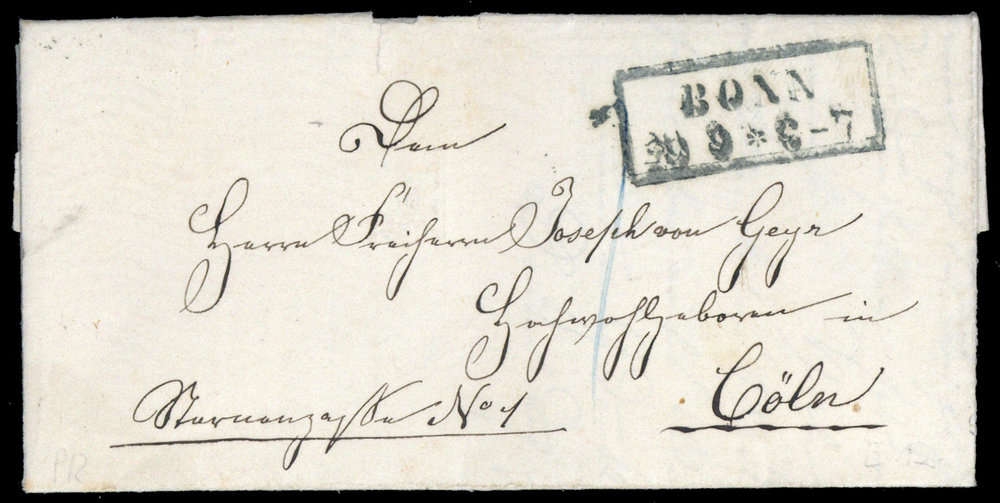 BONN
9 * 6-7
Dem
Herrn Freiherrn Joseph von Geyr
Hochwohlgeboren in
Sternengasse No 1 Cöln